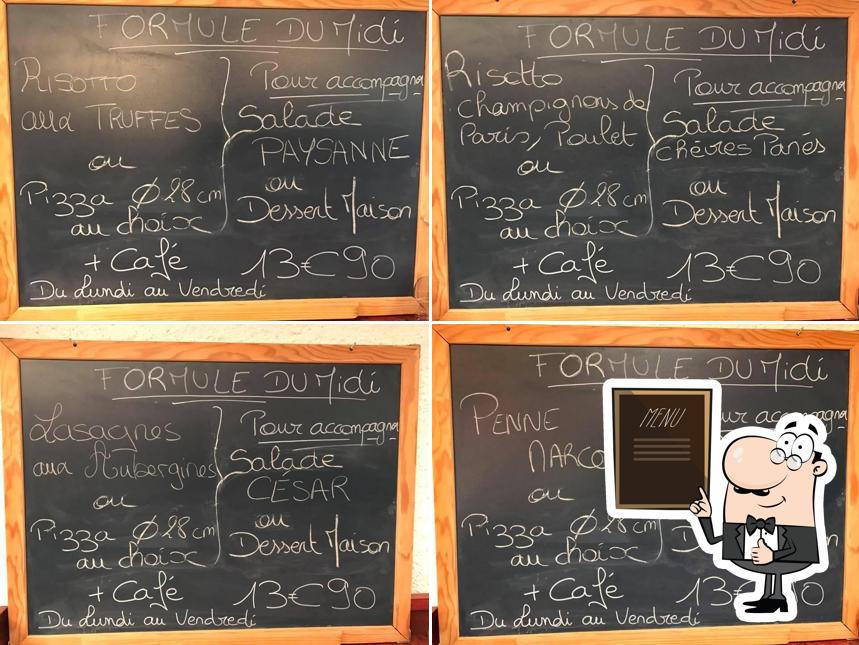 FORMULE DU Midi
Risotto
aux TRUFFES
ou
Pizza Ø 28 cm
au choix
Pour accompagner
Salade
PAYSANNE
ou
Dessert Maison
+ Café 13€90
Du Lundi au Vendredi
FORMULE DU Midi
Risotto
champignons de
Paris, Poulet
ou
Pizza Ø 28 cm
au choix
Pour accompagner
Salade
chèvres Panés
ou
Dessert Maison
+ Café 13€90
Du Lundi au Vendredi
FORMULE DU Midi
Lasagnes
aux Aubergines
ou
Pizza Ø 28 cm
au choix
Pour accompagner
Salade
CÉSAR
ou
Dessert Maison
+ Café 13€90
Du Lundi au Vendredi
FORMULE DU Midi
PENNE
ou
Pizza Ø 28 cm
au choix
+ Café
Du Lundi au Vendredi
MENU